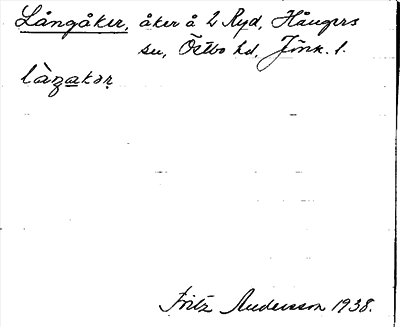 Långåker, åker å 2 Ryd, Hångers
sn, Östbo hd, Jönk. l.
Fritz Andersson 1938.